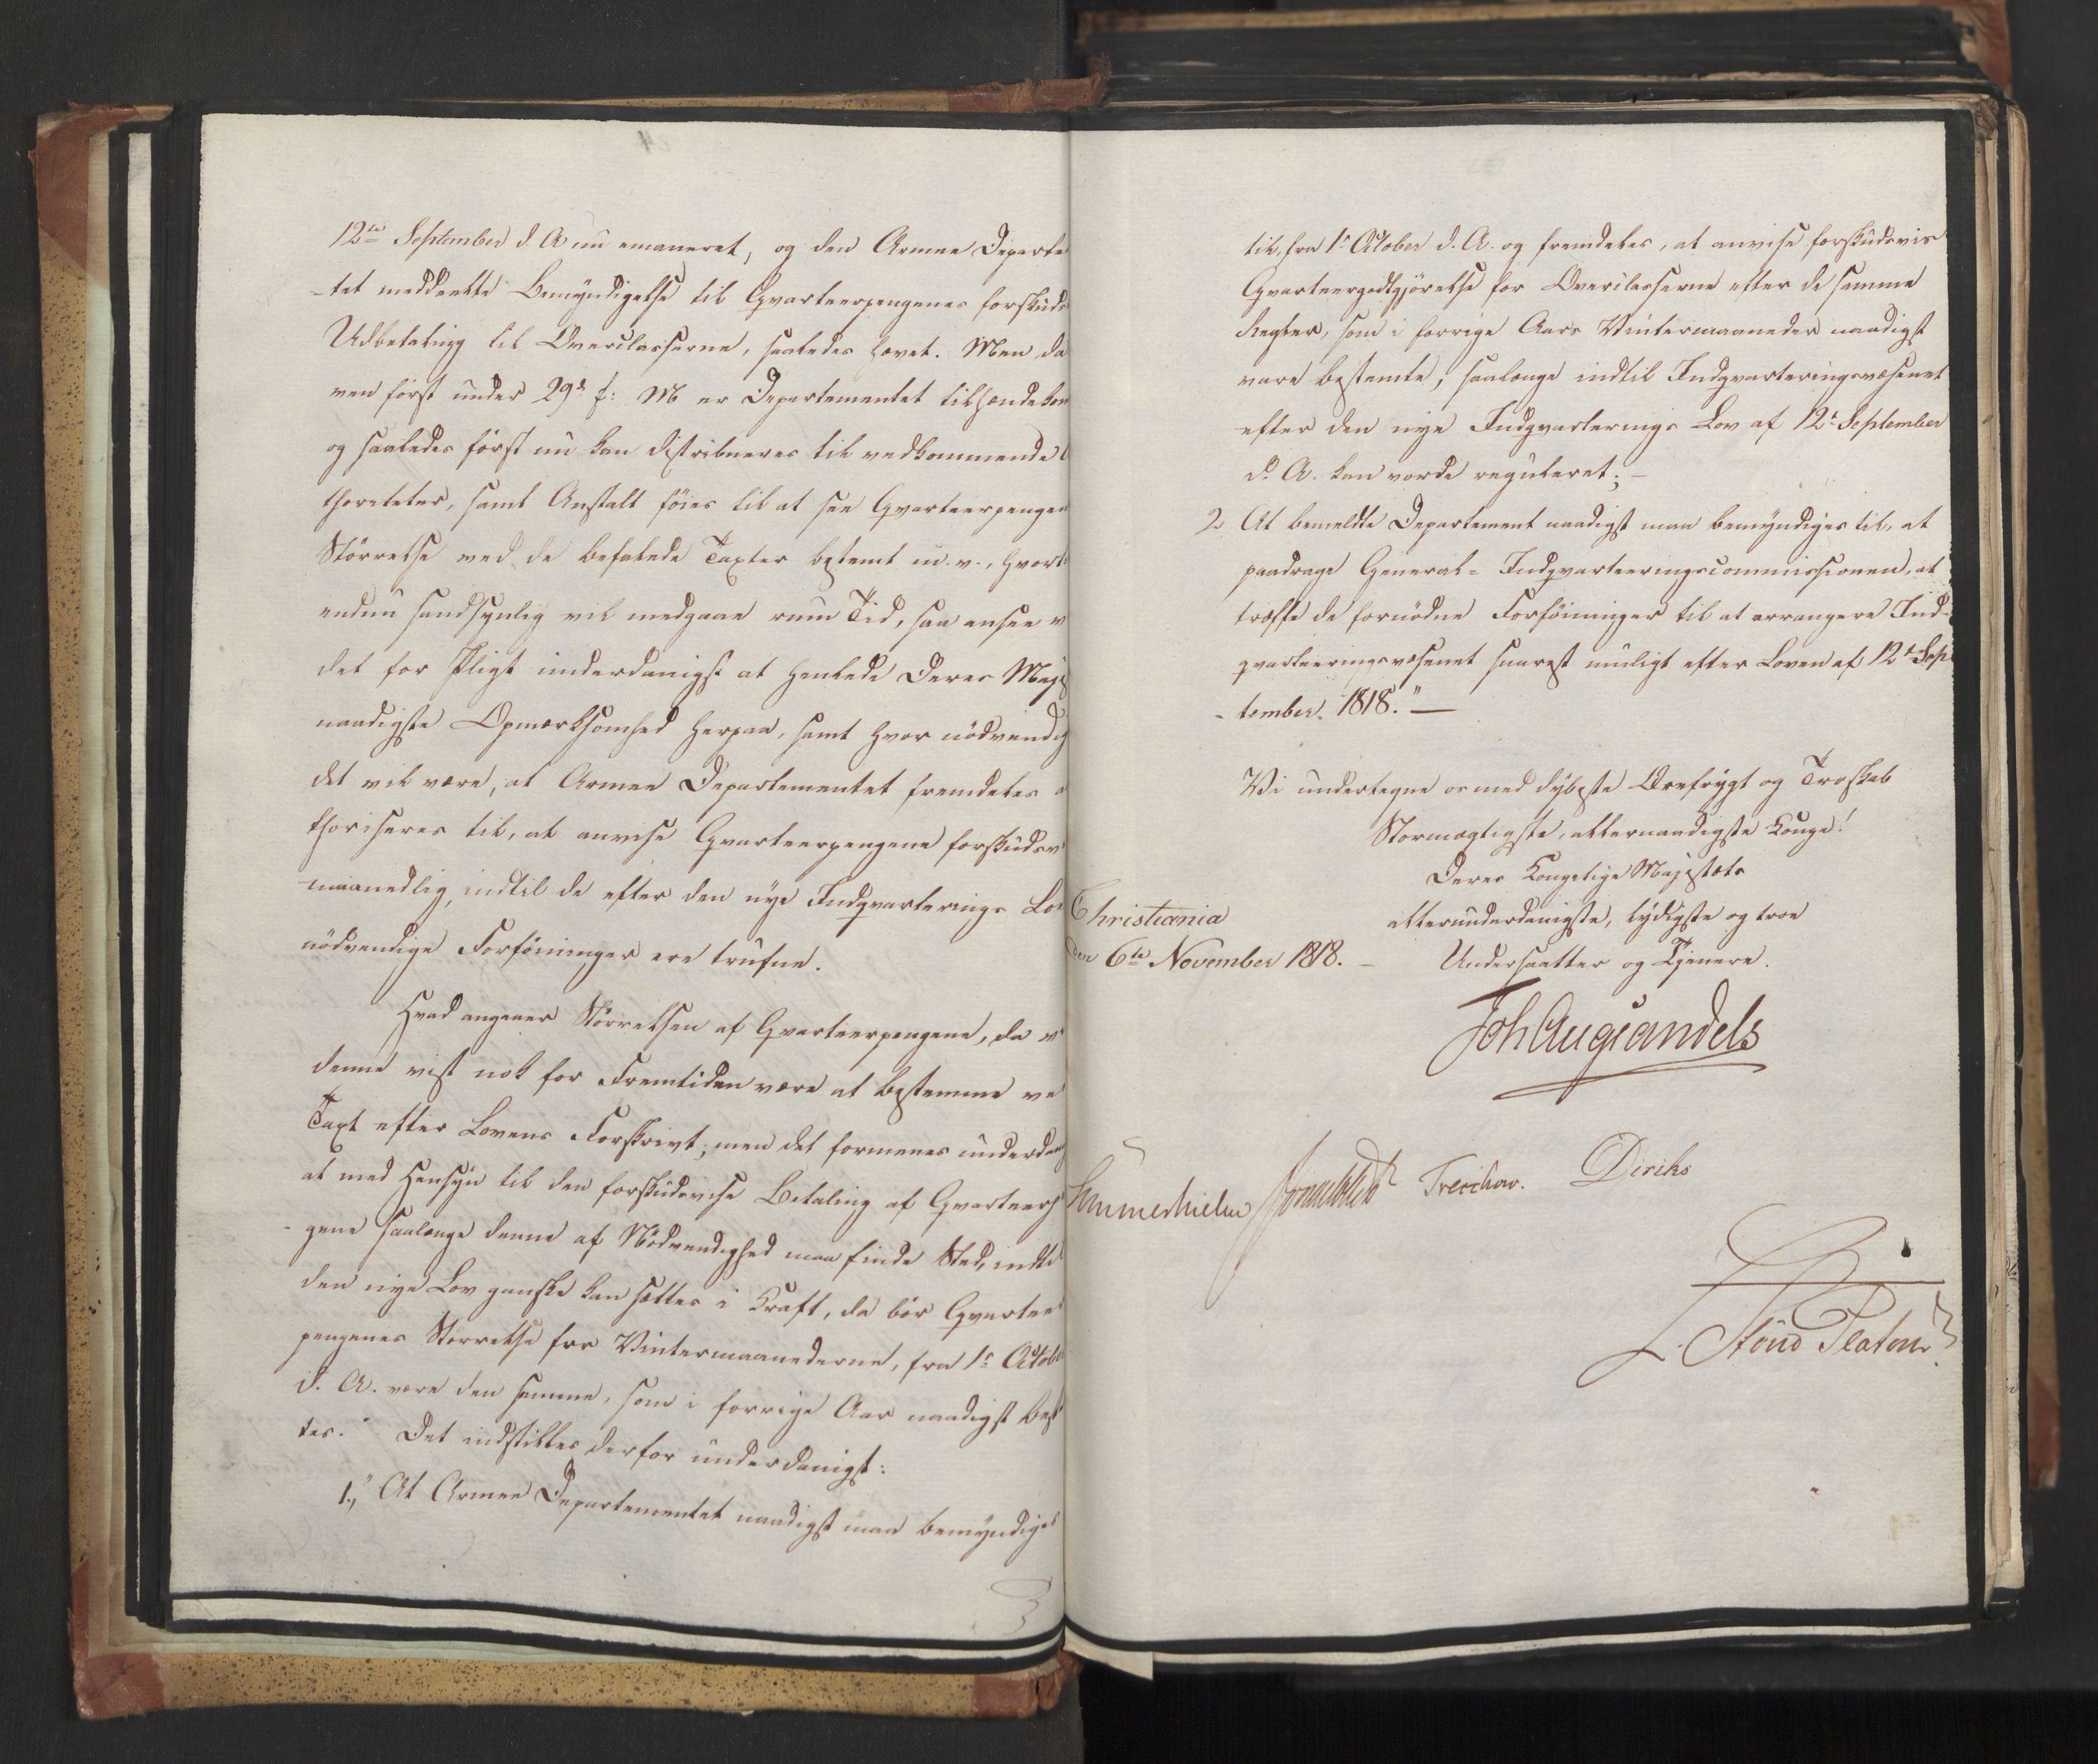 12te September d. A nu emaneret, og den Armee Departe
-tet meddeelte Bemyndigelse til Qvarteerpengenes forskuds
Udbetaling til Overclasserne, saaledes hævet. Men da
ven først under 29de f: M er Departementet tilhændekom
og saaledes først nu kan distribueres til vedkommende
thoriteter, samt Anstalt föies til at see Qvarteerpengen
Störrelse ved de befalede Taxter bestemt m. v., hvort
endnu sandsynlig vil medgaae rum Tid, saa ansee v
det for Pligt underdanigst at henlede Deres Majs
naadigste Opmærksomhed herpaa, samt hvor nödvendig
det vil være, at Armee Departementet fremdeles a
thoriseres til, at anvise Qvarteerpengene forskudsv
maanedlig, indtil de efter den nye Indqvarterings Lov
nödvendige Forföininger ere trufne.
Hvad angaaer Störrelsen af Qvarteerpengene, da v
denne vist nok for Fremtiden være at bestemme ve
Taxt efter Lovens Forskrivt; men det formenes underdan
at med Hensyn til den forskudsvise Betaling af Qvarteerp
-gene saalænge denne af Nödvendighed maa finde Sted, indtil
den nye Lov ganske kan sættes i Kraft, da bör Qvarteer
pengenes Störrelse for Vintermaanederne, fra 1s Octob
d. A. være den samme, som i forrige Aar naadigst best
tes. Det indstilles derfor underdanigst:
1., At Armee Departementet naadigst maa bemyndiges
til, fra 1s October d. A. og fremdeles, at anvise forskudsvis
Qvarteergodtgjörelse for Overclasserne efter de samme
Regler, som i forrige Aars Vintermaaneder naadigst
vare bestemte, saalænge indtil Indqvarteringsvæsenet
efter den nye Indqvarterings Lov af 12te September
d. A. kan vorde reguleret; -
2 At bemeldte Departement naadigst maa bemyndiges til, at
paadrage General-Indqvarteeringscommissionen, at
træffe de fornödne Forföininger til at arrangere Ind-
qvarteeringsvæsenet snarest muligt efter Loven af 12te Sep
-tember 1818." —
Vi undertegne os med dybeste Ærefrygt og Troskab
Stormægtigste, allernaadigste Konge!
Deres Kongelige Majestæts
allerunderdanigste, lydigste og troe
Undersaatter og Tjenere.
Christiania
den 6te November 1818. -
Joh Aug Sandels
Sommerhielm Treschow. Diriks